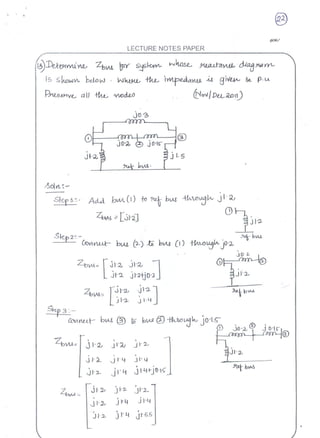 22
LECTURE NOTES PAPER
Determine Zbus for system whose reactance diagram
is shown below. Where the impedance is given in p.u
Preserve all the nodes (Nov/Dec 2011)
j0.3
① j0.2 ② j0.15 ③
j1.2 j1.5
ref bus.
Soln:-
Step 1:- Add bus (1) to ref bus through j1.2
Zbus = [j1.2]
① j1.2
ref bus
Step 2:-
Connect bus (2) to bus (1) through j0.2
Zbus = [ j1.2 j1.2
j1.2 j1.2+j0.2 ]
Zbus = [ j1.2 j1.2
j1.2 j1.4 ]
j0.2
j1.2
ref bus
Step 3:-
Connect bus ③ to bus ② through j0.15
Zbus = [ j1.2 j1.2 j1.2
j1.2 j1.4 j1.4
j1.2 j1.4 j1.4+j0.15 ]
① j0.2 ② j0.15 ③
j1.2
ref bus
Zbus = [ j1.2 j1.2 j1.2
j1.2 j1.4 j1.4
j1.2 j1.4 j1.55 ]